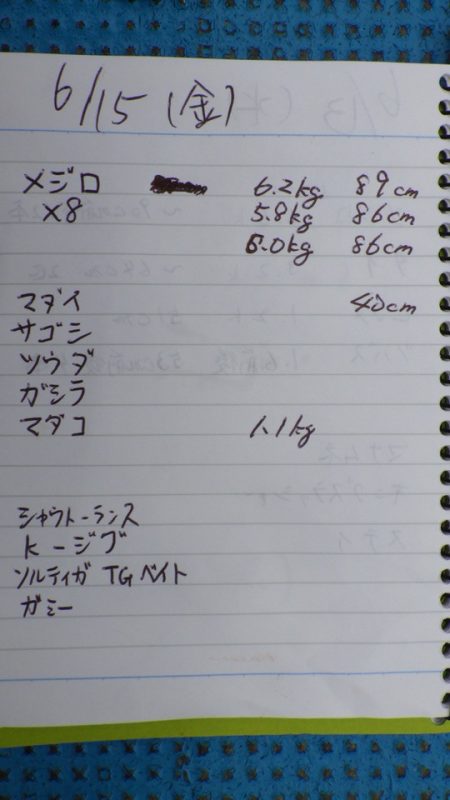 6/15 (金)
メジロ 6.2kg 89cm
×8 5.8kg 86cm
6.0kg 86cm
マダイ 40cm
サゴシ
ツウダ
ガシラ
マダコ 1.1kg
シャウト-ランス
K-ジグ
ソルティガ TGベイト
ガミー